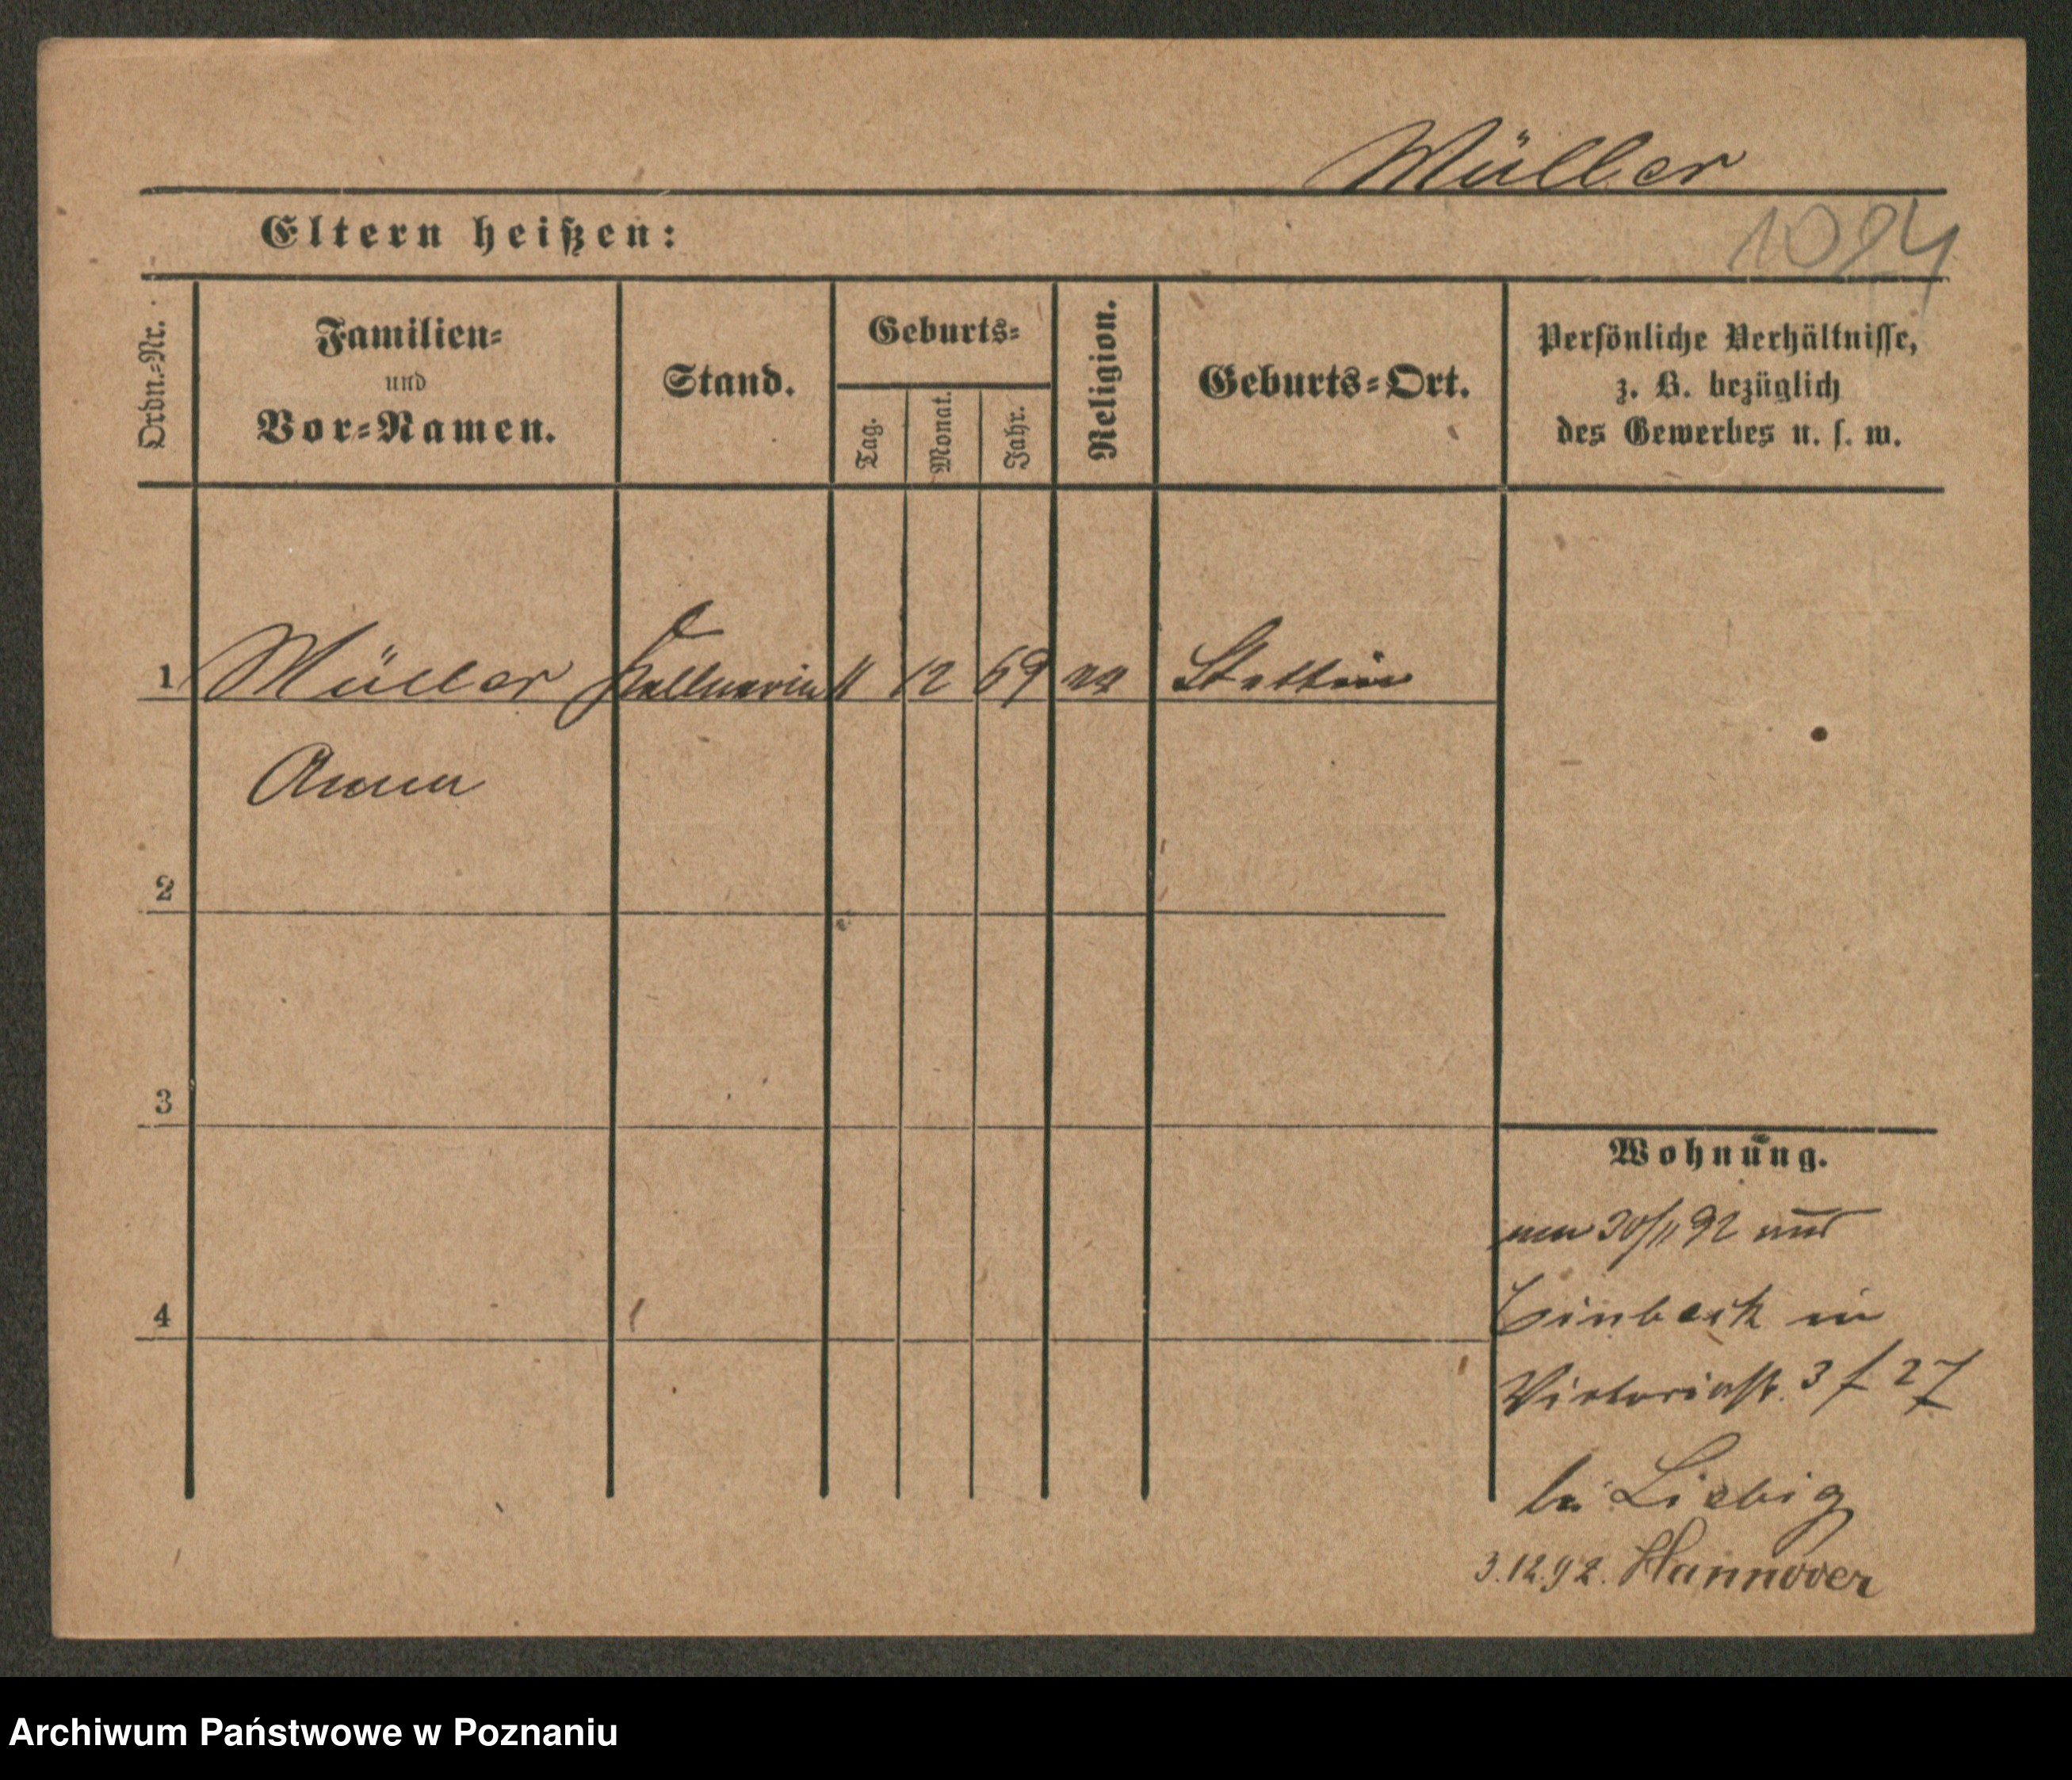 Müller
1094
Eltern heißen:
Ordn.-Nr.
Familien-
und
Vor-Namen.
Stand.
Geburts-
Tag.
Monat.
Jahr.
Religion.
Geburts-Ort.
Persönliche Verhältnisse,
z. B. bezüglich
des Gewerbes u. s. w.
1 Müller Kellnerin 11 12 69 ev Stettin
Anna
2
3
4
Wohnung.
am 30/11 92 aus
Einbeck in
Victoriastr. 3 f 27
bei Liebig
3.12.92. Hannover
Archiwum Państwowe w Poznaniu